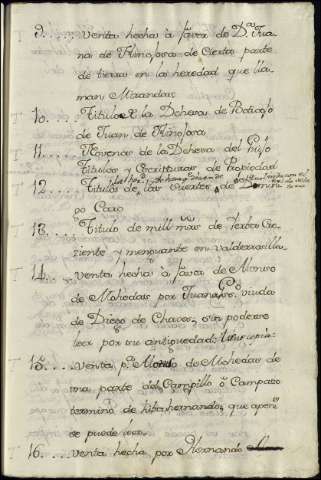 9.... venta hecha à favor de D.ª Jua
na de Hinojosa de cierta parte
de tierra en la heredad que lla
man Mirandas
10.... Titulos de la Dehesa de
de Juan de Hinojosa
11.... de la Dehesa del
Titulos y Escripturas de Propiedad
12.... Titulos de las suertes de
po Caro
13.... Titulo de mill mrs de Yerba Cre
ziente y menguante en
14.... venta hecha à favor de Alonso
de Mohedas por Juana viuda
de Diego de Chaves, sin poderse
leer por su antiguedad
15.... venta p.ª Alonso de Mohedas de
una parte del Campillo ò Campazo
termino de Ribahernando, que apen.s
se puede leer
16.... venta hecha por Hernando